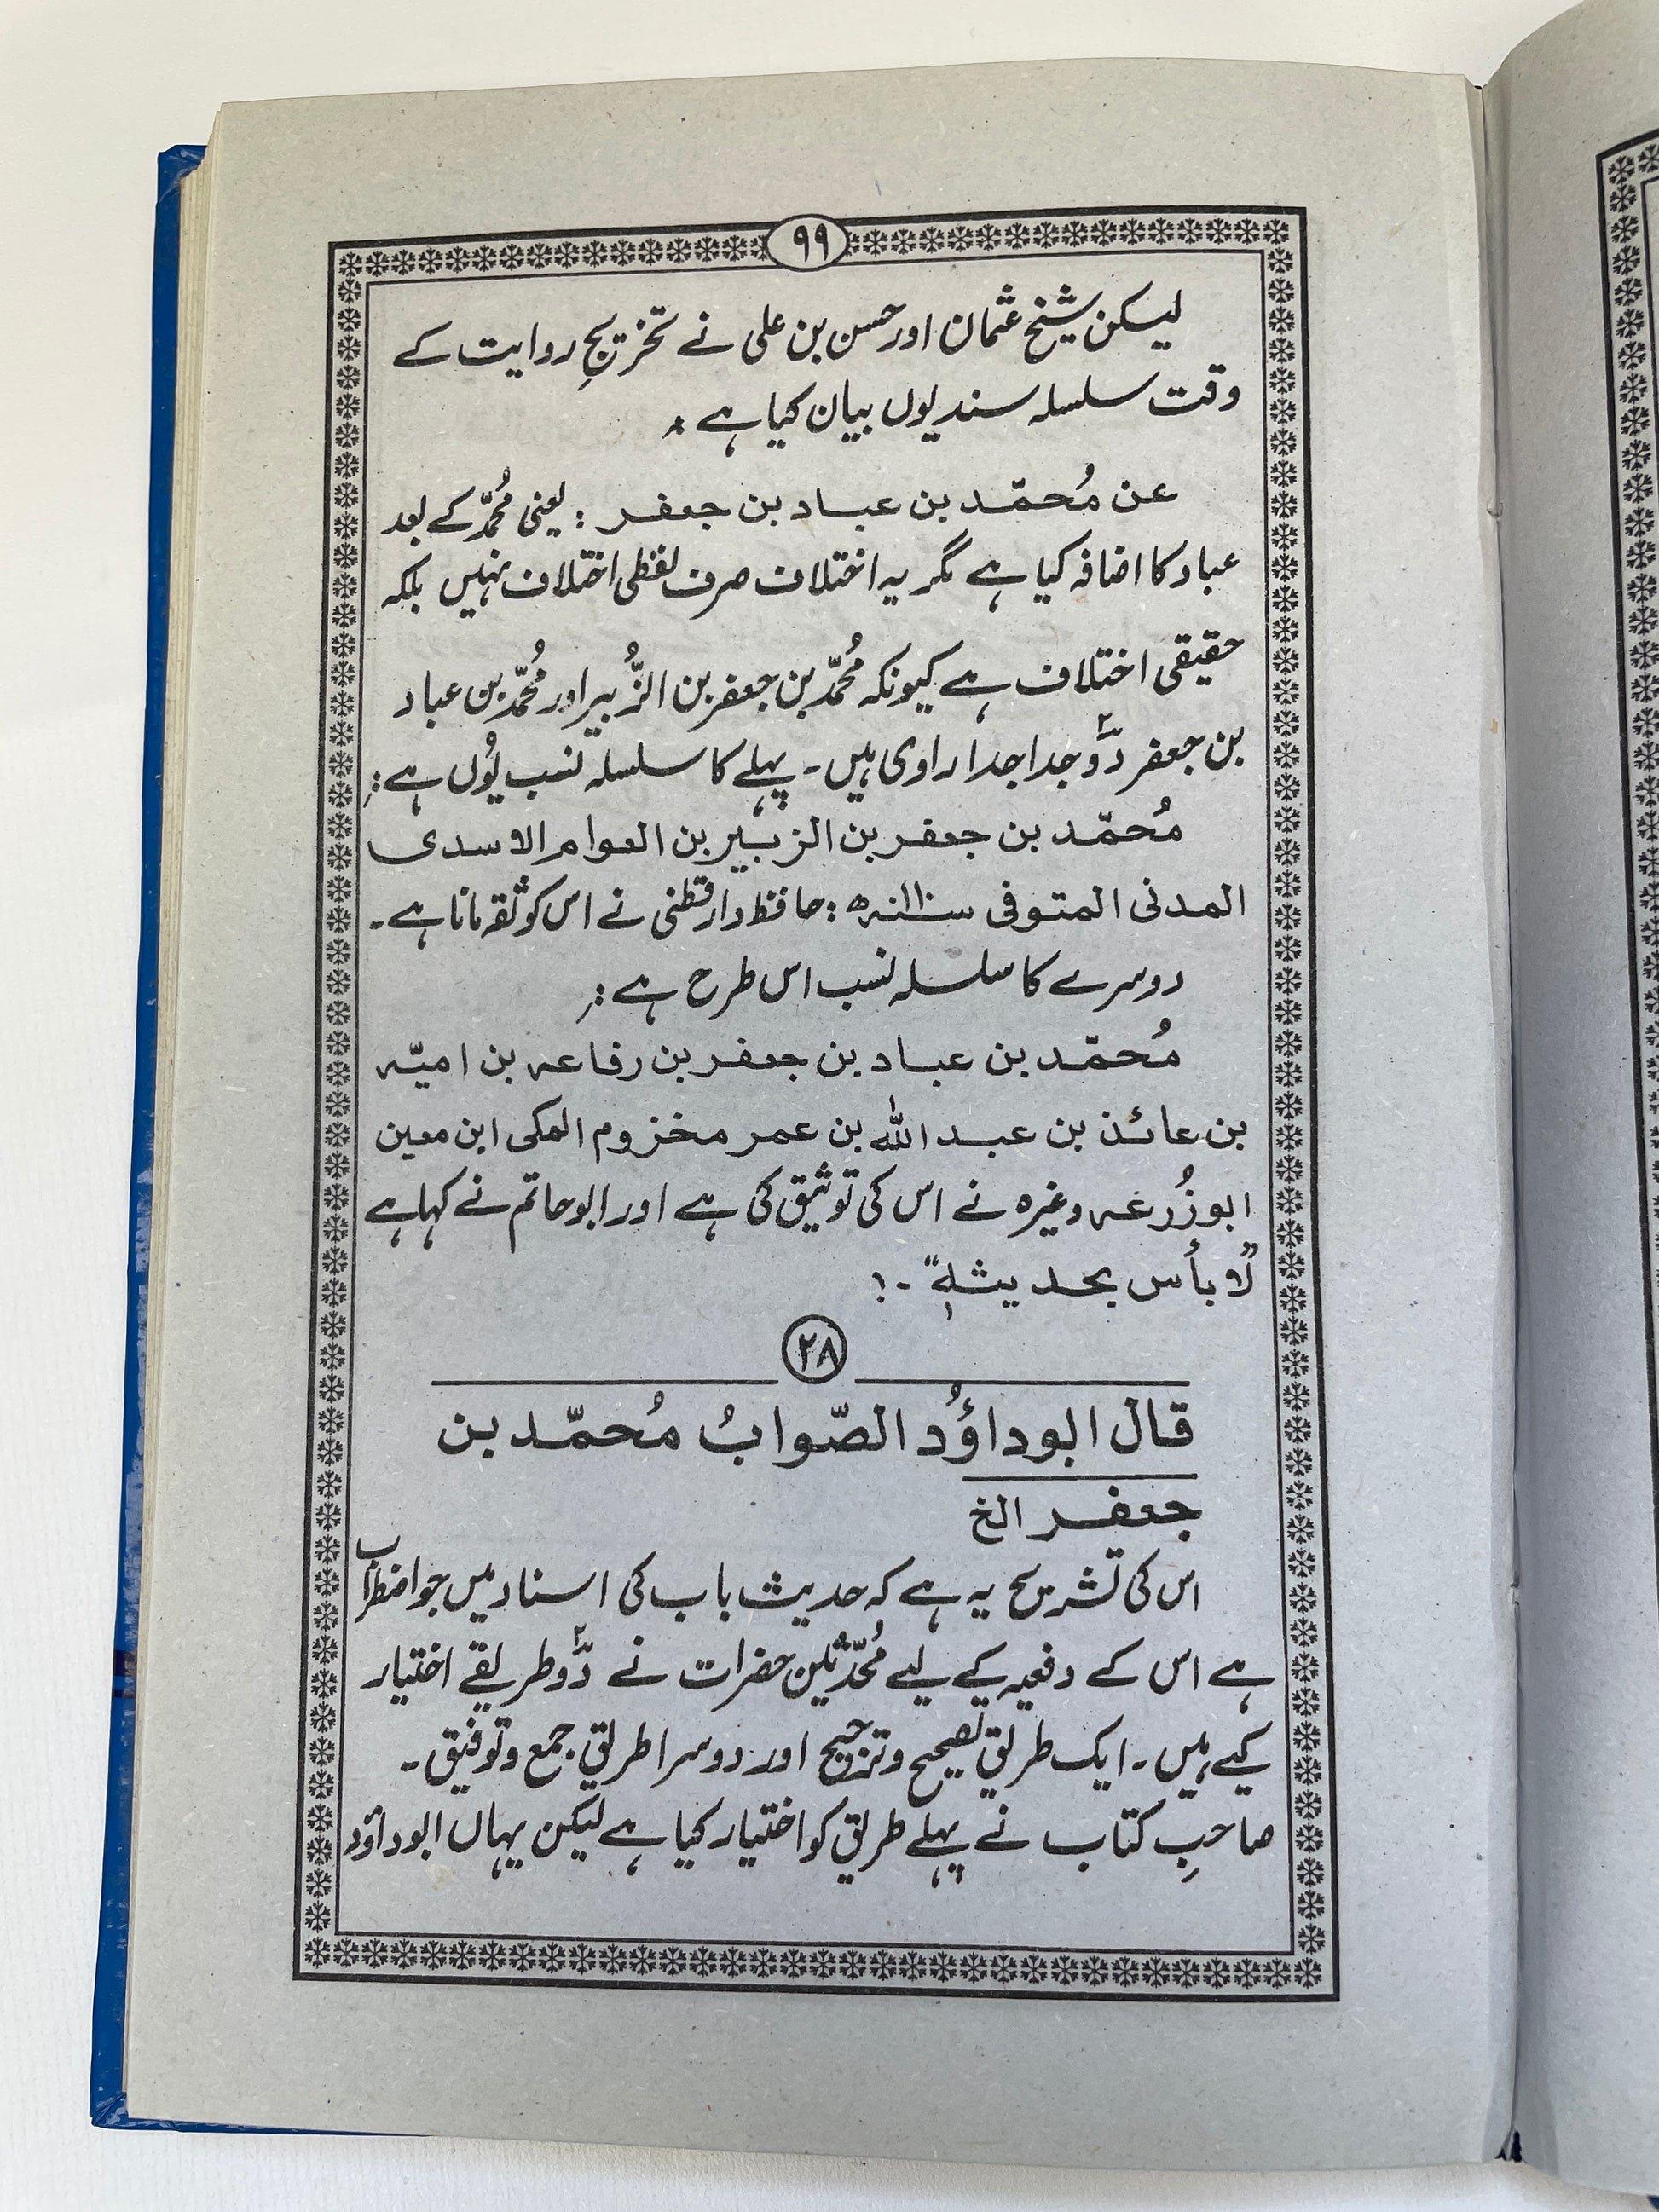 ٩٩
لیکن شیخ عثمان اور حسن بن علی نے تخریجِ روایت کے
وقت سلسلہ سند یوں بیان کیا ہے :
عن مُحمّد بن عباد بن جعفر : یعنی مُحمّد کے بعد
عباد کا اضافہ کیا ہے مگر یہ اختلاف صرف لفظی اختلاف نہیں بلکہ
حقیقی اختلاف ہے کیونکہ مُحمّد بن جعفر بن الزُّبیر اور مُحمّد بن عباد
بن جعفر دَّو۲ جدا جدا راوی ہیں ۔ پہلے کا سلسلہ نسب یُوں ہے :
مُحمّد بن جعفر بن الزبیر بن العوام الاسدی
المدنی المتوفی سنہ۱۱۰ھ : حافظ دارقطنی نے اس کو ثقہ مانا ہے ۔
دوسرے کا سلسلہ نسب اس طرح ہے :
مُحمّد بن عباد بن جعفر بن رفاعہ بن امیّہ
بن عائذ بن عبد اللّٰہ بن عمر مخزوم المکی ابن معین
ابوزُرغہ وغیرہ نے اس کی توثیق کی ہے اور ابوحاتم نے کہا ہے
”لا بأس بحدیثہٖ“ ۔!
٢٨
قال ابوداؤد الصّوابُ مُحمّد بن
جعفر الخ
اس کی تشریح یہ ہے کہ حدیث باب کی اسناد میں جو اضطراب
ہے اس کے دفعیہ کے لیے مُحدّثین حضرات نے دَّو۲ طریقے اختیار
کیے ہیں ۔ ایک طریق تصحیح و ترجیح اور دوسرا طریق جمع و توفیق ۔
صاحبِ کتاب نے پہلے طریق کو اختیار کیا ہے لیکن یہاں ابوداؤد